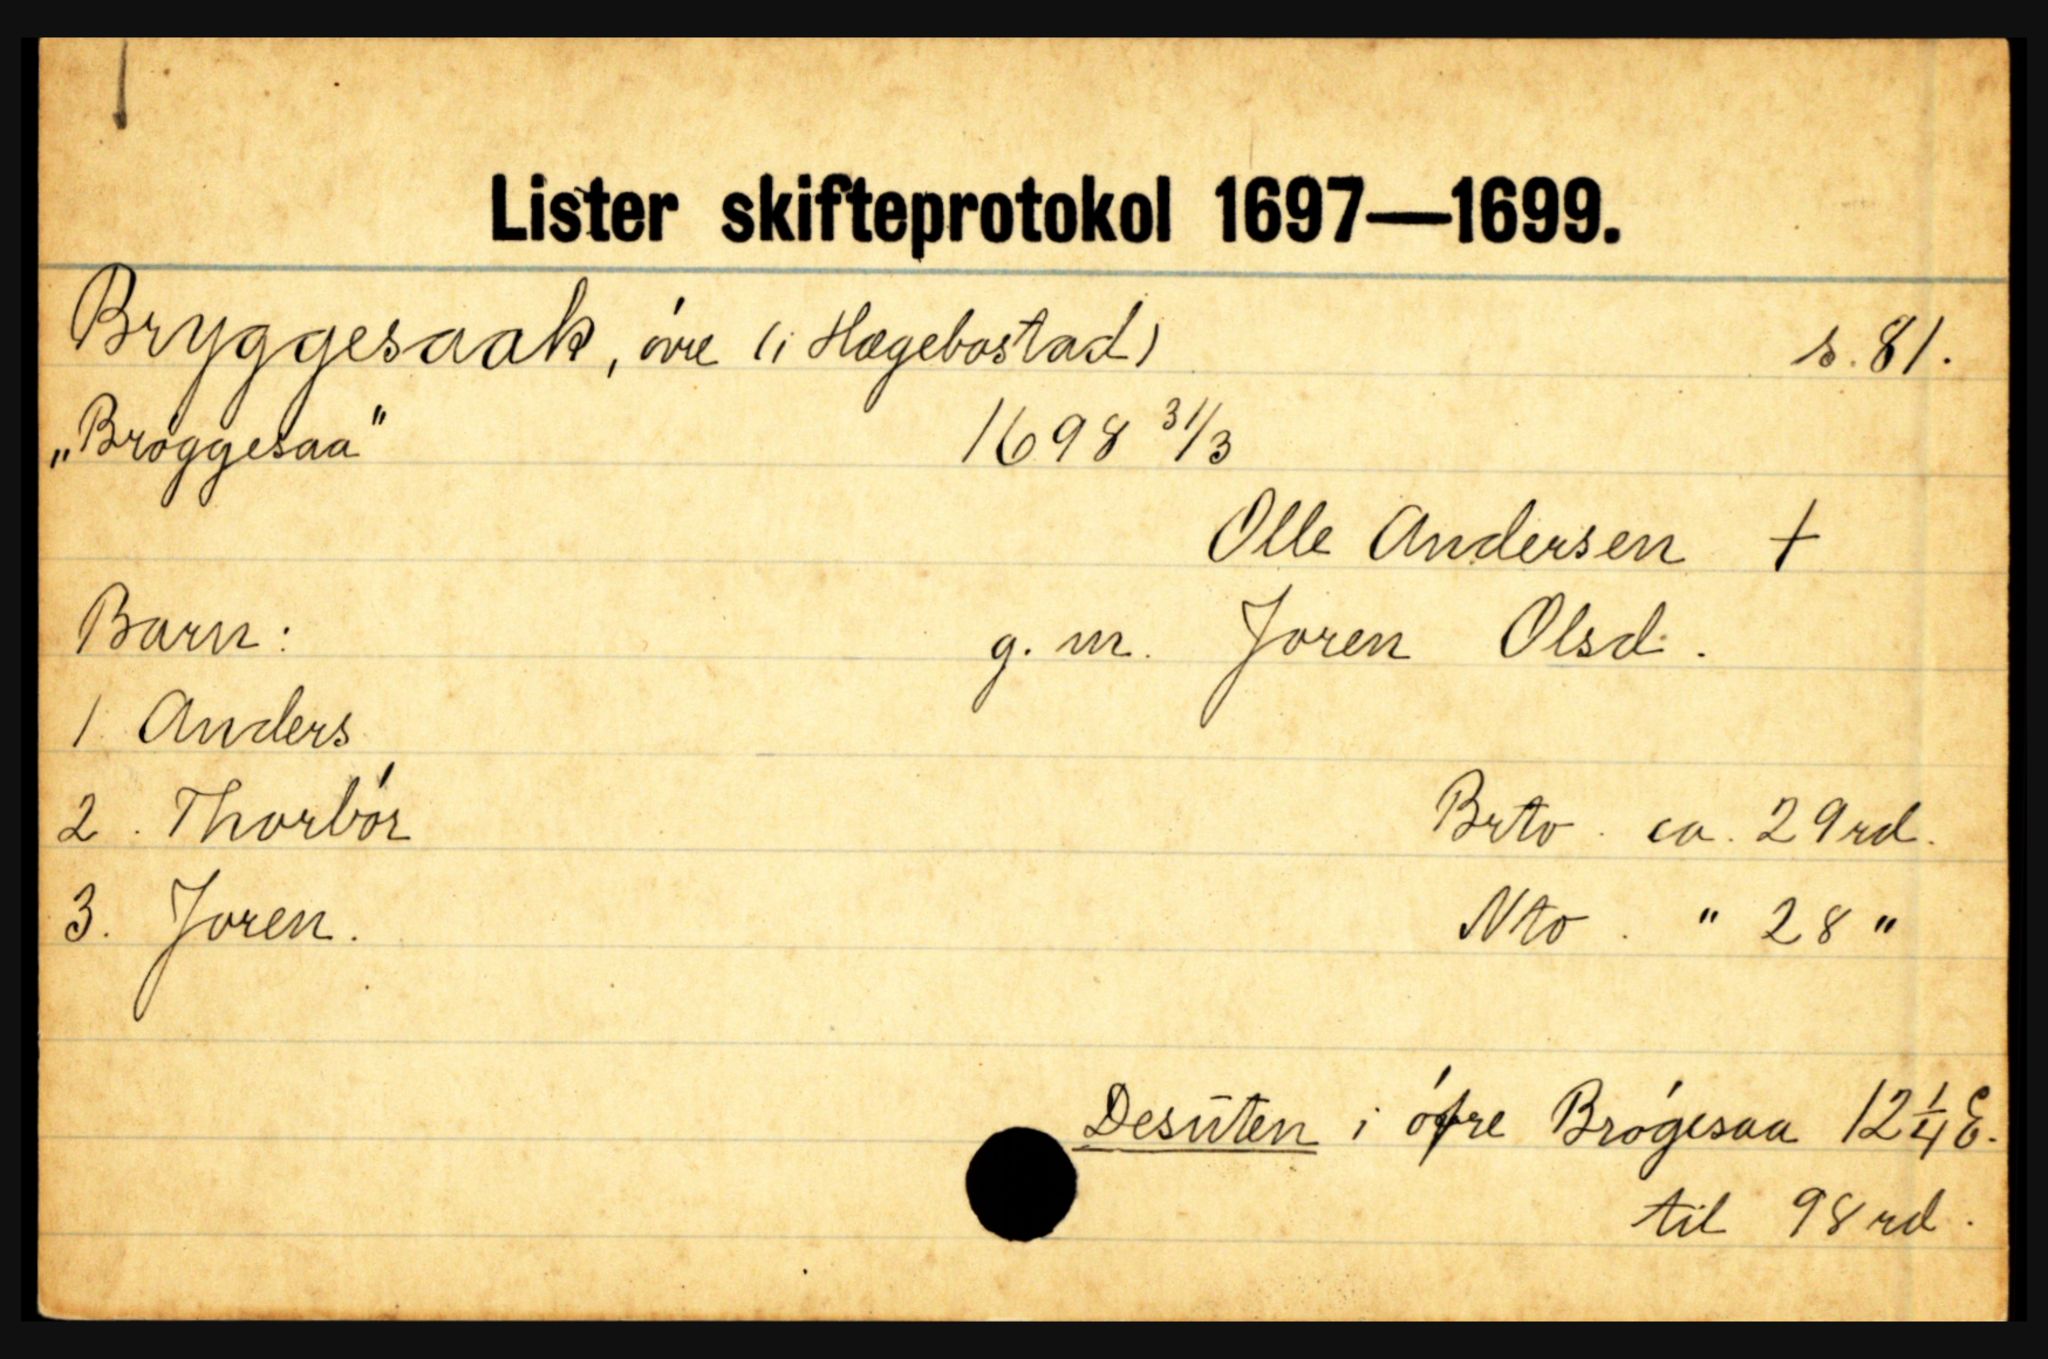 Lister skifteprotokol 1697—1699.
Bryggesaak, óvre (i Hægebostad) s. 81.
„Bróggesaa" 1698 31/3
Olle Andersen †
Barn: g. m. Joren Olsd.
1. Anders
2. Thorbór Brto. ca. 29 rd.
3. Joren. Nto. " 28 "
Desūten i ófre Brógesaa 12 1/4 E.
til 98 rd.